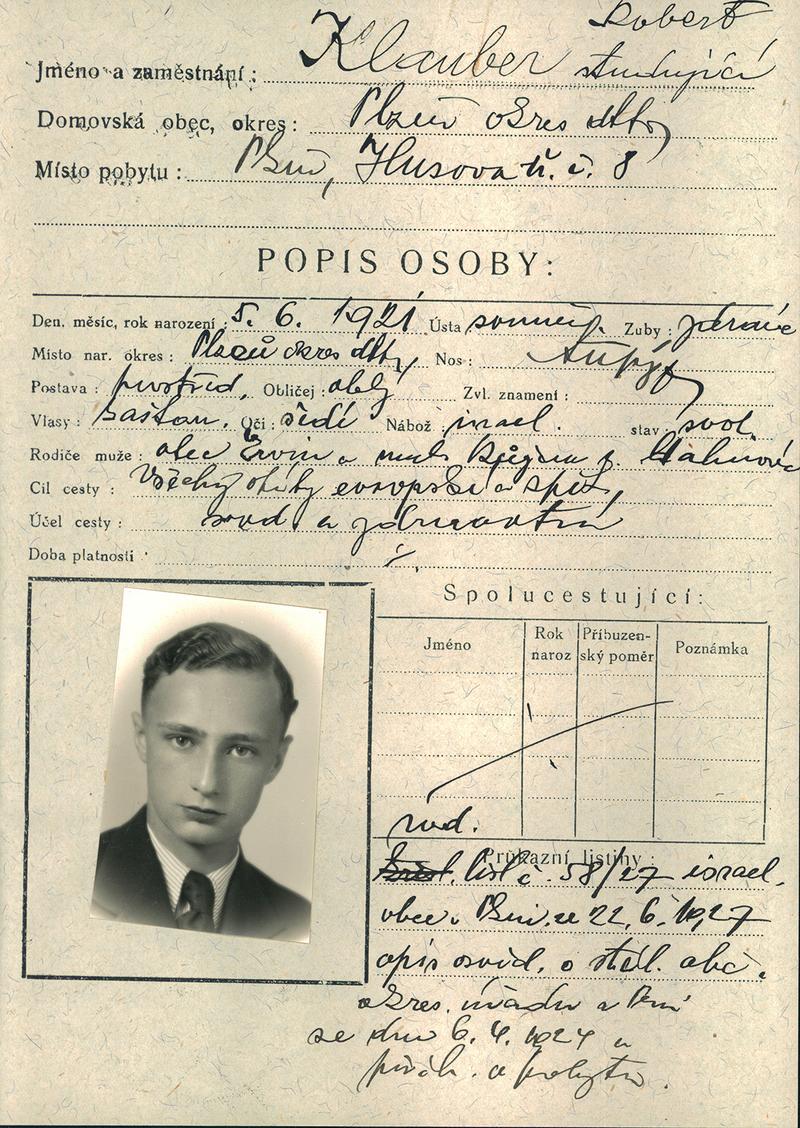 Robert
Jméno a zaměstnání: Klauber studující
Domovská obec, okres: Plzeň okres dtto
Místo pobytu: Plzni, Husova tř. č. 8
POPIS OSOBY:
Den, měsíc, rok narození: 5. 6. 1921 Ústa souměr. Zuby: zdravé
Místo nar. okres: Plzeň okres dtto Nos: tupý
Postava: prostřed. Obličej: oblý Zvl. znamení:
Vlasy: kaštan. Oči: šedé Nábož. israel. stav: svob.
Rodiče muže: otec Ervín a matka
Cíl cesty: Všechny státy evropské a zpět,
Účel cesty: soukr. a zdravotní
Doba platnosti
Spolucestující:
Jméno Rok naroz Příbuzenský poměr Poznámka
rod.
Průkazní listiny:
list č. 58/27 israel.
obce v Plzni ze 22. 6. 1927
opis osvěd. o stát. obč.
okres. úřadu v Plzni
ze dne 6. 4. 1924 a
přihl. o pobytu.